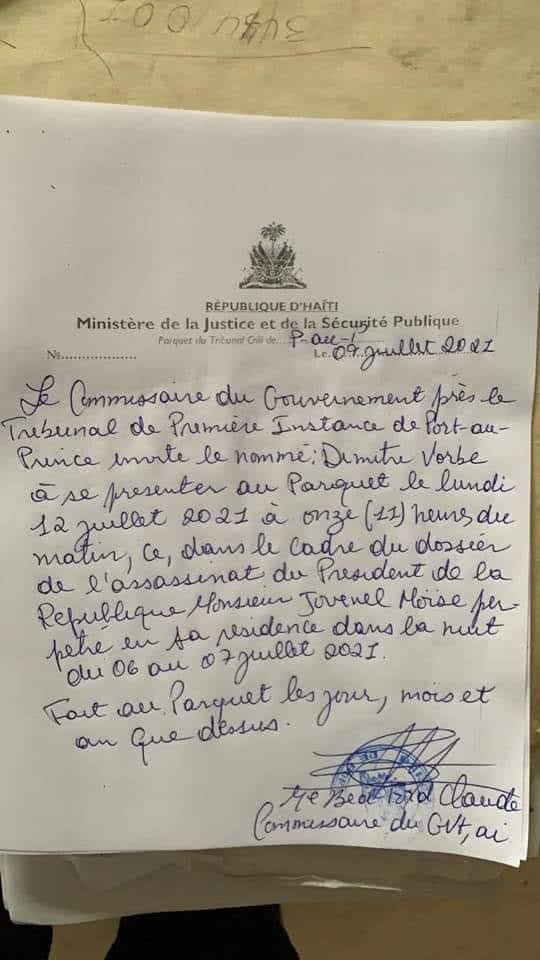 RÉPUBLIQUE D'HAÏTI
Ministère de la Justice et de la Sécurité Publique
Parquet du Tribunal Civil de P-au-P
No.................. Le 09 juillet 2021
Le Commissaire du Gouvernement près le
Tribunal de Première Instance de Port-au-
Prince invite le nommé: Dimitri Vorbe
à se presenter au Parquet le lundi
12 juillet 2021 à onze (11) heures du
matin, ce, dans le cadre du dossier
de l'assassinat du President de la
Republique Monsieur Jovenel Moïse per-
petré en sa residence dans la nuit
du 06 au 07 juillet 2021.
Fait au Parquet les jour, mois et
an que dessus.
Me Bed-Ford Claude
Commissaire du GVt, ai